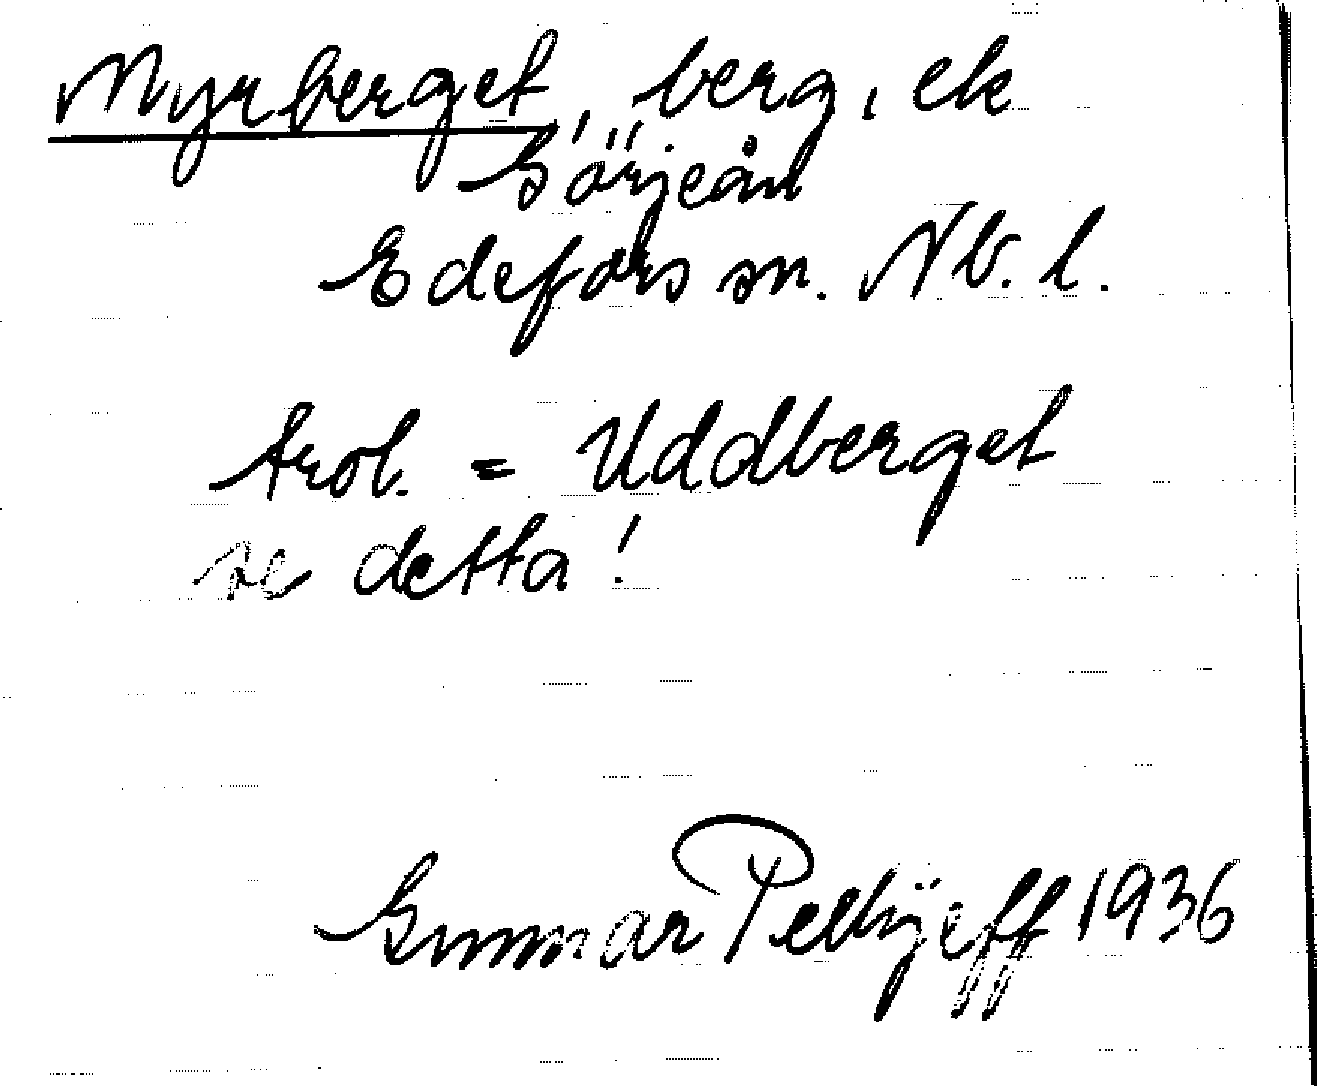 Myrberget, berg, ek
Görjeån
Edefors sn. Nb. l.
trol. = Uddberget
se detta!
Gunnar Pellijeff 1936